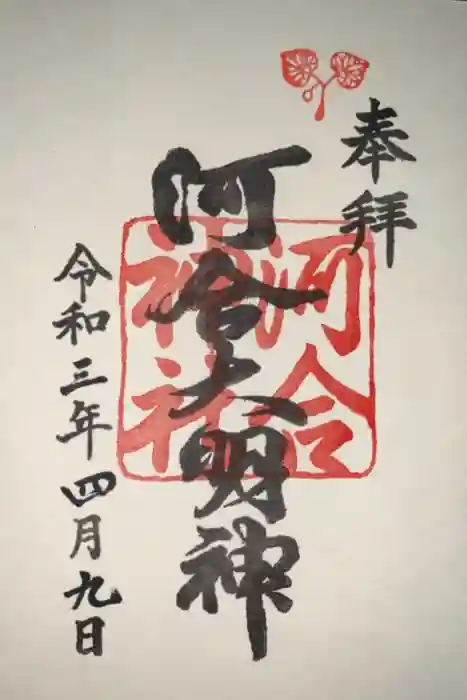 奉拝
河合大明神
河合
神社
令和三年四月九日